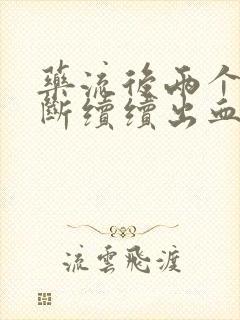 藥流後兩个
斷續續出血
流雲飛渡